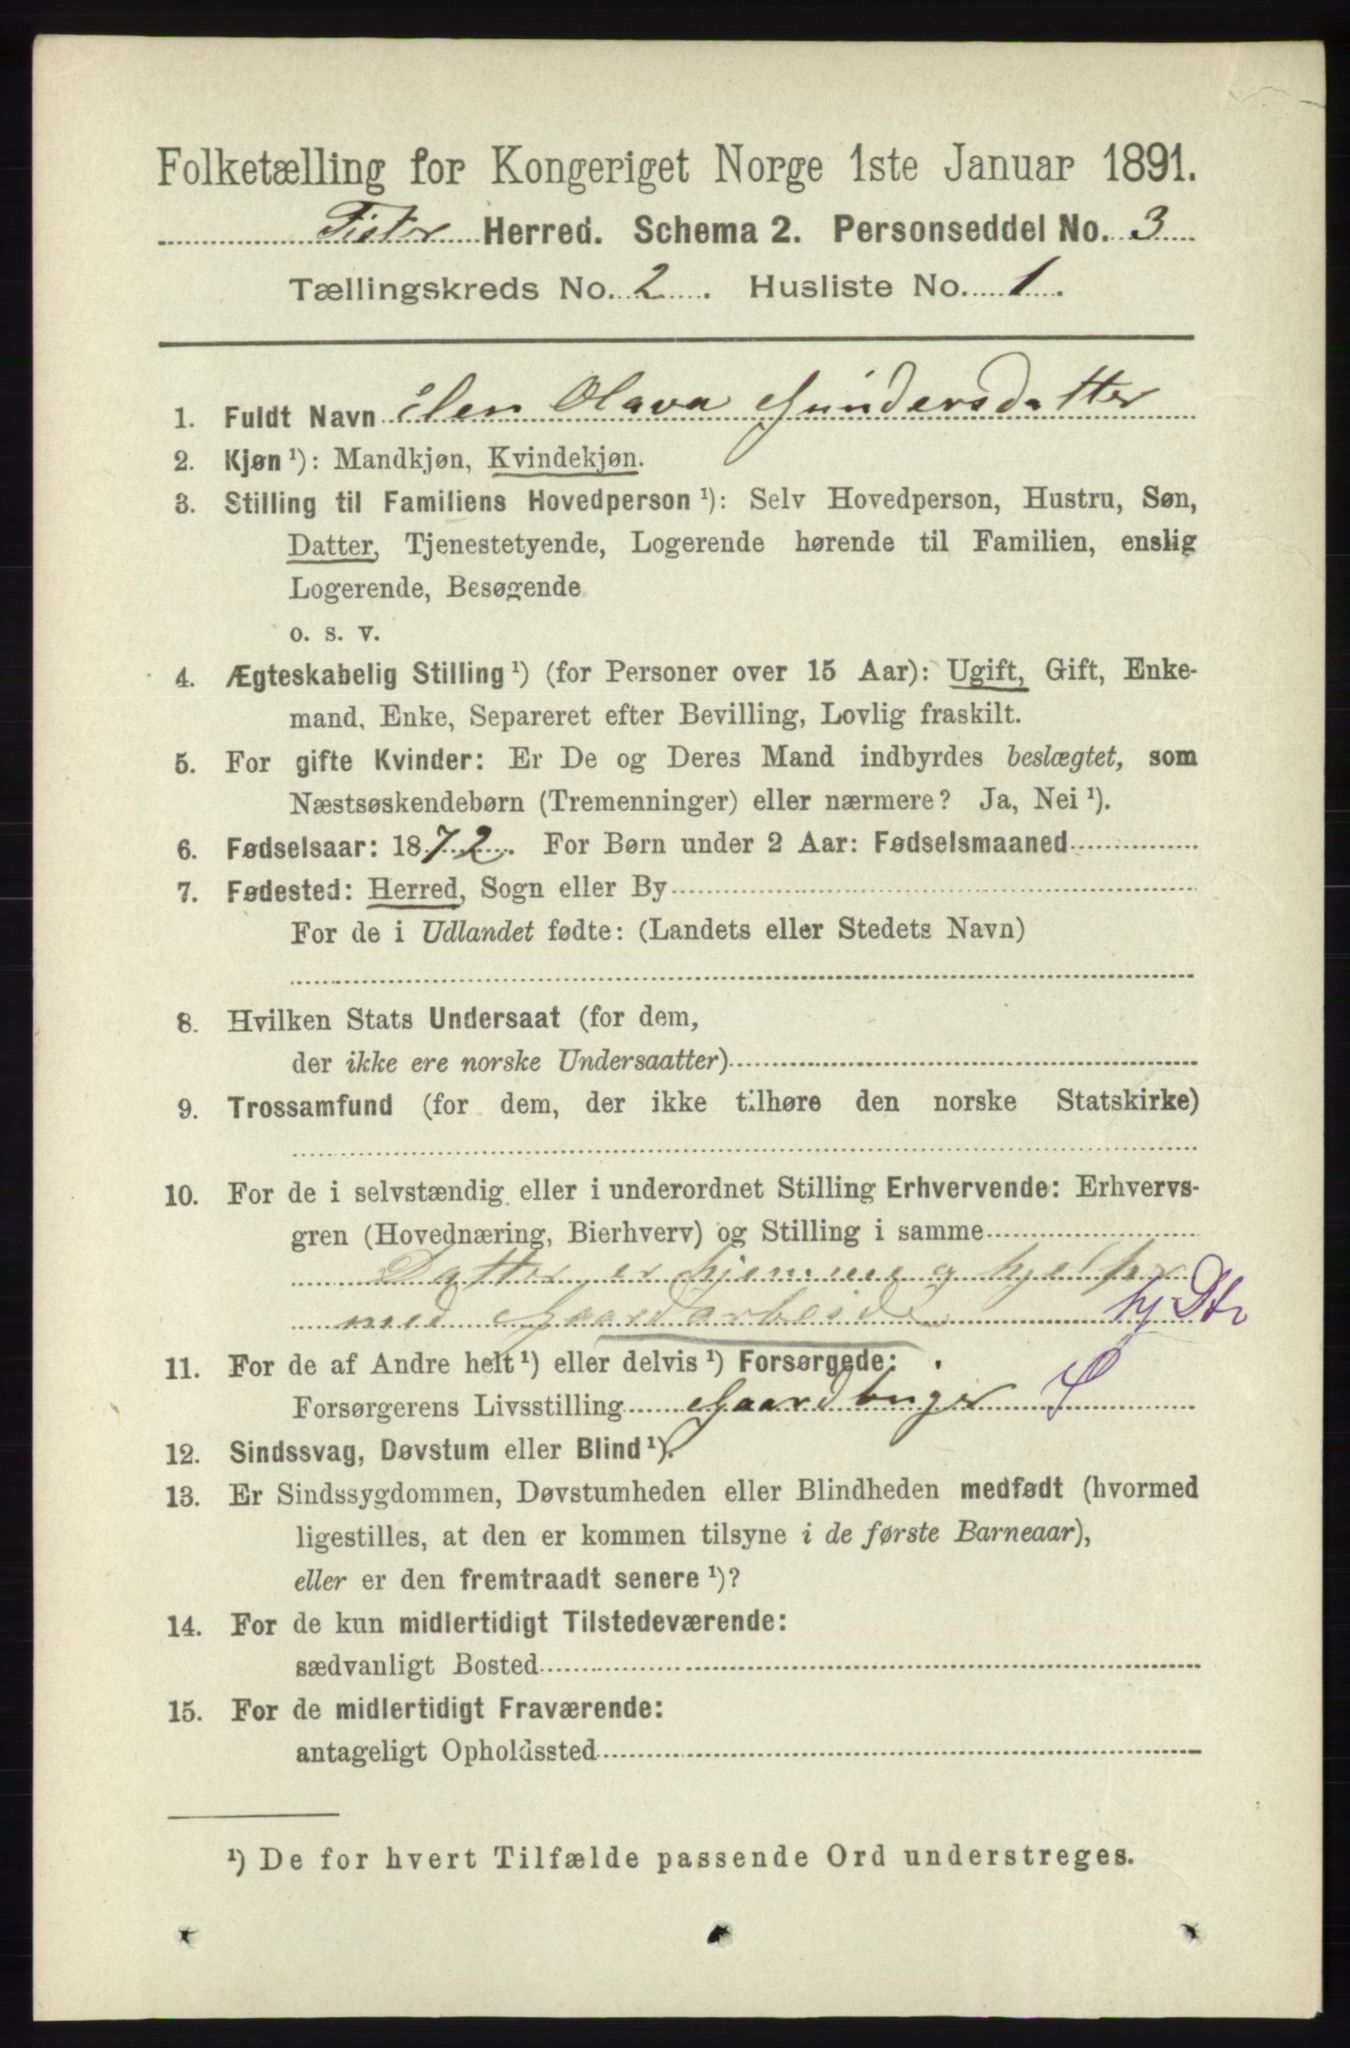 Folketælling for Kongeriget Norge 1ste Januar 1891.
Fister Herred. Schema 2. Personseddel No. 3
Tællingskreds No. 2. Husliste No. 1.
1. Fuldt Navn Elen Olava Gundersdatter
2. Kjøn ¹): Mandkjøn, Kvindekjøn.
3. Stilling til Familiens Hovedperson ¹): Selv Hovedperson, Hustru, Søn,
Datter, Tjenestetyende, Logerende hørende til Familien, enslig
Logerende, Besøgende
o. s. v.
4. Ægteskabelig Stilling ¹) (for Personer over 15 Aar): Ugift, Gift, Enke-
mand, Enke, Separeret efter Bevilling, Lovlig fraskilt.
5. For gifte Kvinder: Er De og Deres Mand indbyrdes beslægtet, som
Næstsøskendebørn (Tremenninger) eller nærmere? Ja, Nei ¹).
6. Fødselsaar: 1872. For Børn under 2 Aar: Fødselsmaaned
7. Fødested: Herred, Sogn eller By
For de i Udlandet fødte: (Landets eller Stedets Navn)
8. Hvilken Stats Undersaat (for dem,
der ikke ere norske Undersaatter)
9. Trossamfund (for dem, der ikke tilhøre den norske Statskirke)
10. For de i selvstændig eller i underordnet Stilling Erhvervende: Erhvervs-
gren (Hovednæring, Bierhverv) og Stilling i samme
Datter er hjemme og hjelper
med Gaardarbeide hj Dtr
11. For de af Andre helt ¹) eller delvis ¹) Forsørgede:
Forsørgerens Livsstilling Gaardbruger S
12. Sindssvag, Døvstum eller Blind ¹).
13. Er Sindssygdommen, Døvstumheden eller Blindheden medfødt (hvormed
ligestilles, at den er kommen tilsyne i de første Barneaar),
eller er den fremtraadt senere ¹)?
14. For de kun midlertidigt Tilstedeværende:
sædvanligt Bosted
15. For de midlertidigt Fraværende:
antageligt Opholdssted
¹) De for hvert Tilfælde passende Ord understreges.